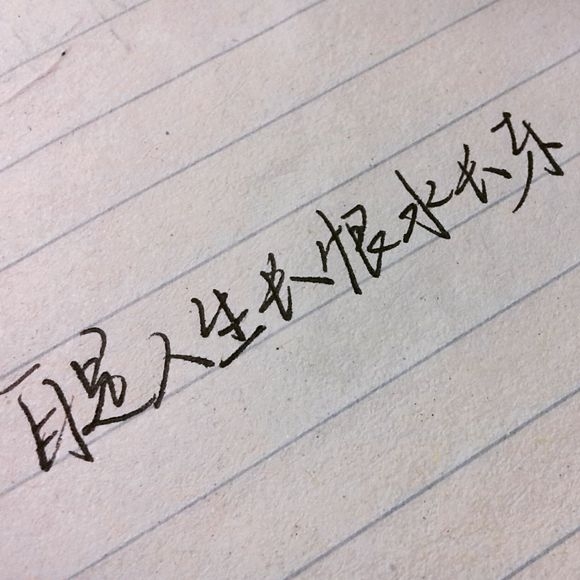 自是人生长恨水长东